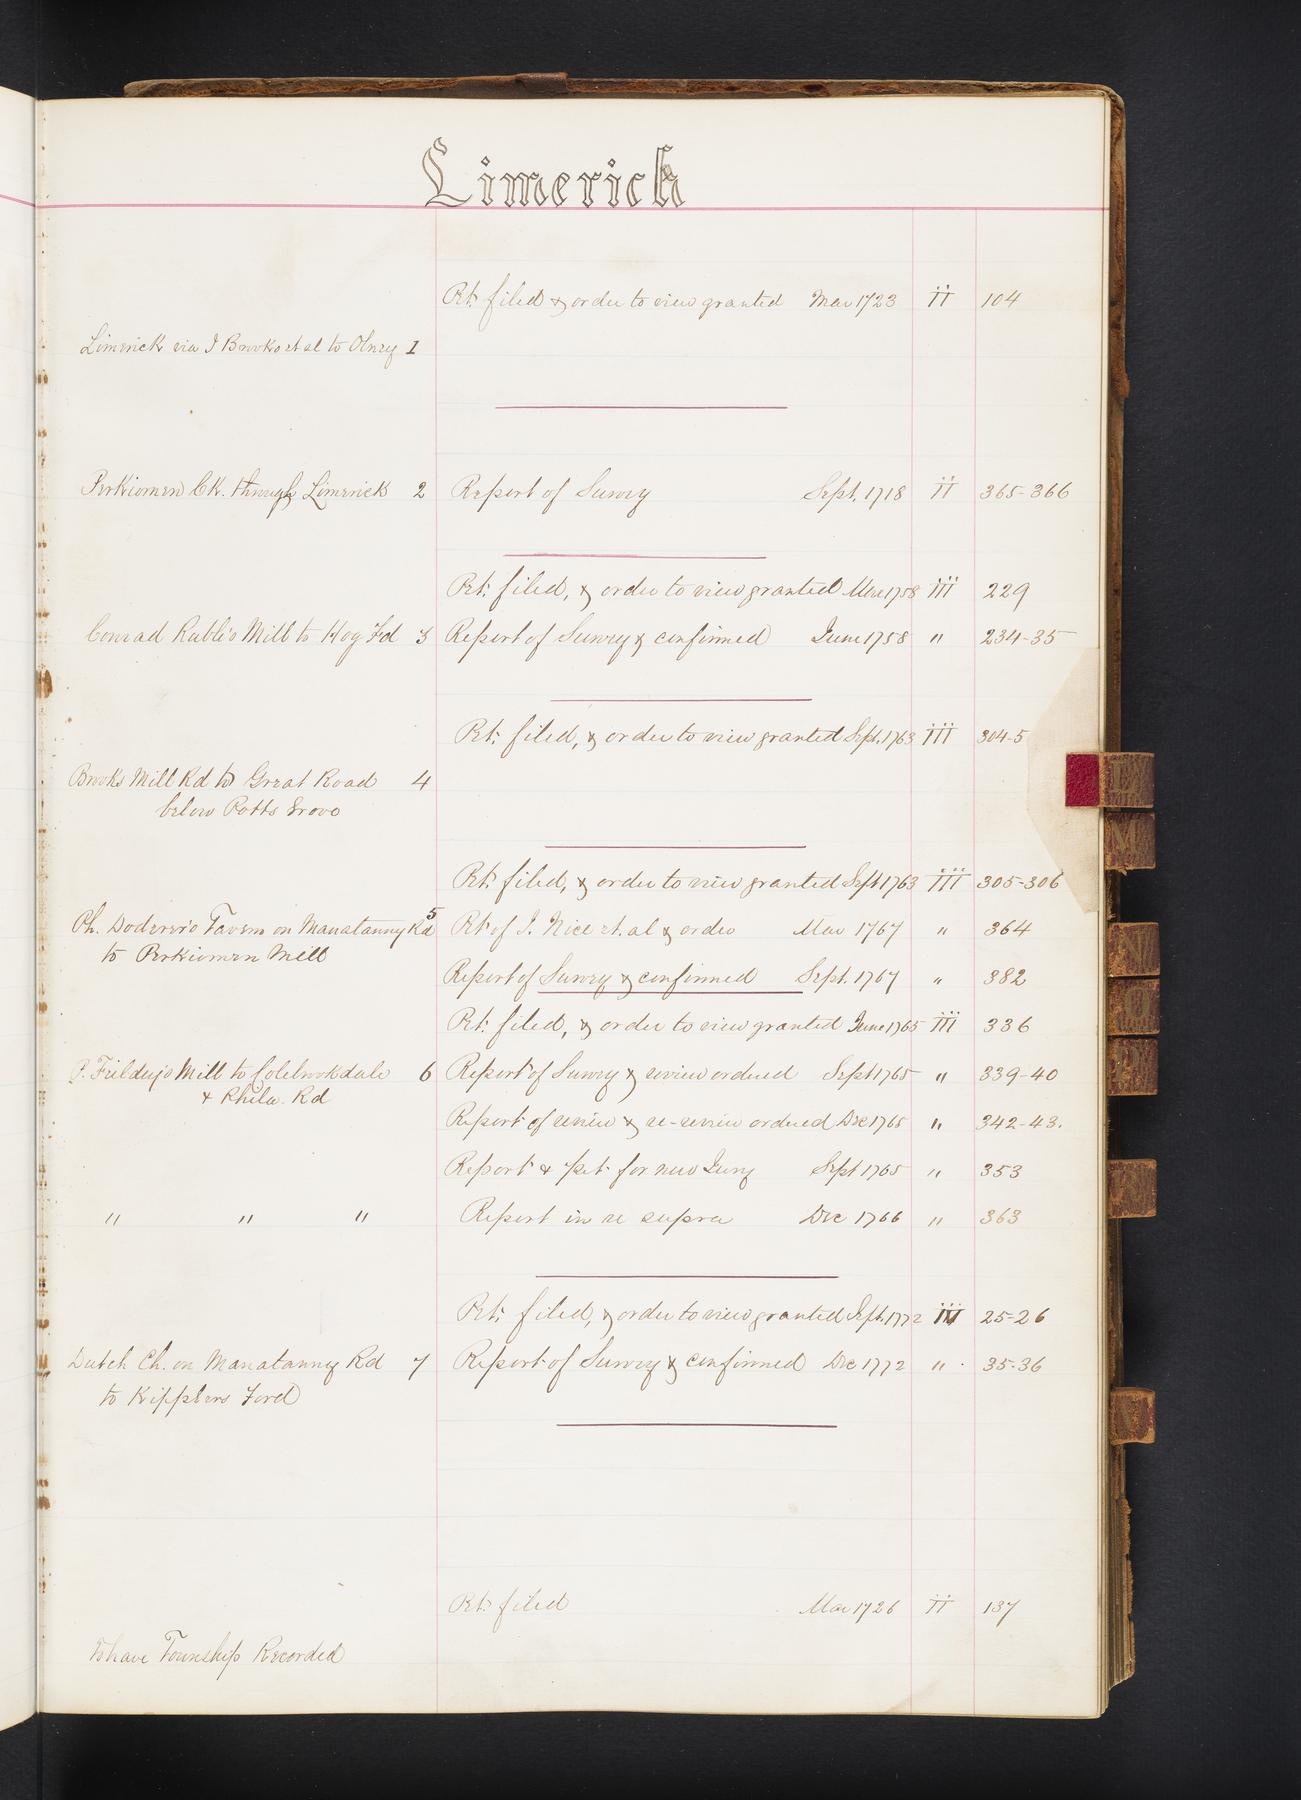 Limerick
Pt: filed & order to view granted Mar 1723 II 104
Limerick via J Brooks et al to Olney 1
Perkiomen Ck. through Limerick 2 Report of Survey Sept. 1718 II 365-366
Pt: filed, & order to view granted Mar 1758 III 229
Conrad Rubli's Mill to Hog Fd 3 Report of Survey & confirmed June 1758 " 234-35
Pt: filed, & order to view granted Sept. 1763 III 304-5
Brooks Mill Rd to Great Road 4
below Potts Grove
Pt: filed, & order to view granted Sept 1763 III 305-306
Ph. Doderer's Tavern on Manatanny Rd 5 Pt of J. Nice et. al & order Mar 1767 " 364
to Perkiomen Mill
Report of Survey & confirmed Sept. 1767 " 382
Pt: filed, & order to view granted June 1765 III 336
P. Frildey's Mill to Colebrookdale 6 Report of Survey & review ordered Sept 1765 " 339-40
& Phila. Rd
Report of review & re-review ordered Dec 1765 " 342-43.
Report & pet for new Jury Sept 1765 " 353
" " " Report in re supra Dec 1766 " 363
Pt: filed, & order to view granted Sept. 1772 25-26
Dutch Ch. on Manatanny Rd 7 Report of Survey & confirmed Dec 1772 " 35-36
to Kipplers Ford
Pt: filed Mar 1726 II 137
To have Township Recorded
L
M
N
O
P
R